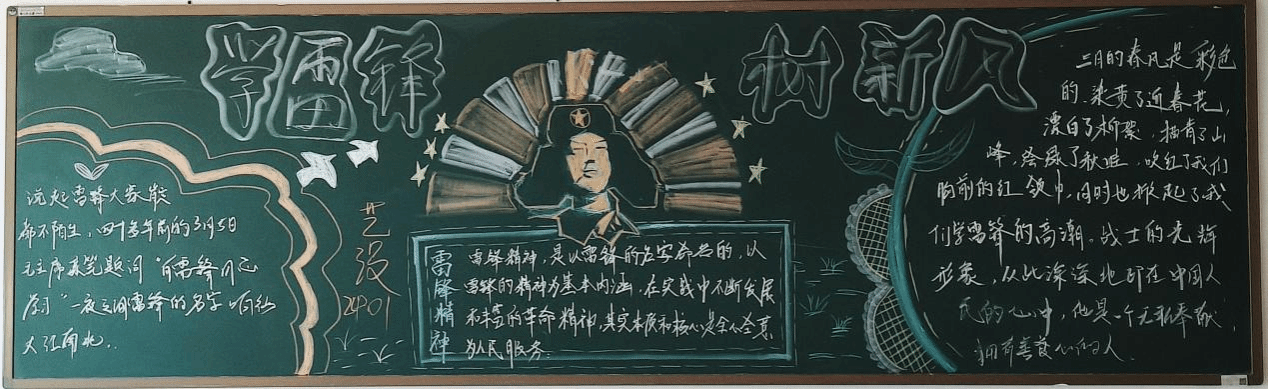 学雷锋 树新风
说起雷锋大家能
都不陌生，四十多年前的3月5日
毛主席亲笔题词“向雷锋同志
学习”一夜之间雷锋的名字响彻
大江南北..
艺设
2401
雷锋精神
雷锋精神，是以雷锋的名字命名的，以
雷锋的精神为基本内涵，在实践中不断发展
和丰富的革命精神，其实质和核心是全心全意
为人民服务.
三月的春风是彩色
的.染黄了迎春花，
漂白了 描青了山
峰，染绿了 吹红了我们
胸前的红领巾，同时也掀起了我
们学雷锋的高潮.战士的光辉
形象，从此深深地印在中国人
民的心中，他是一个无私奉献，
拥有善良心的人.